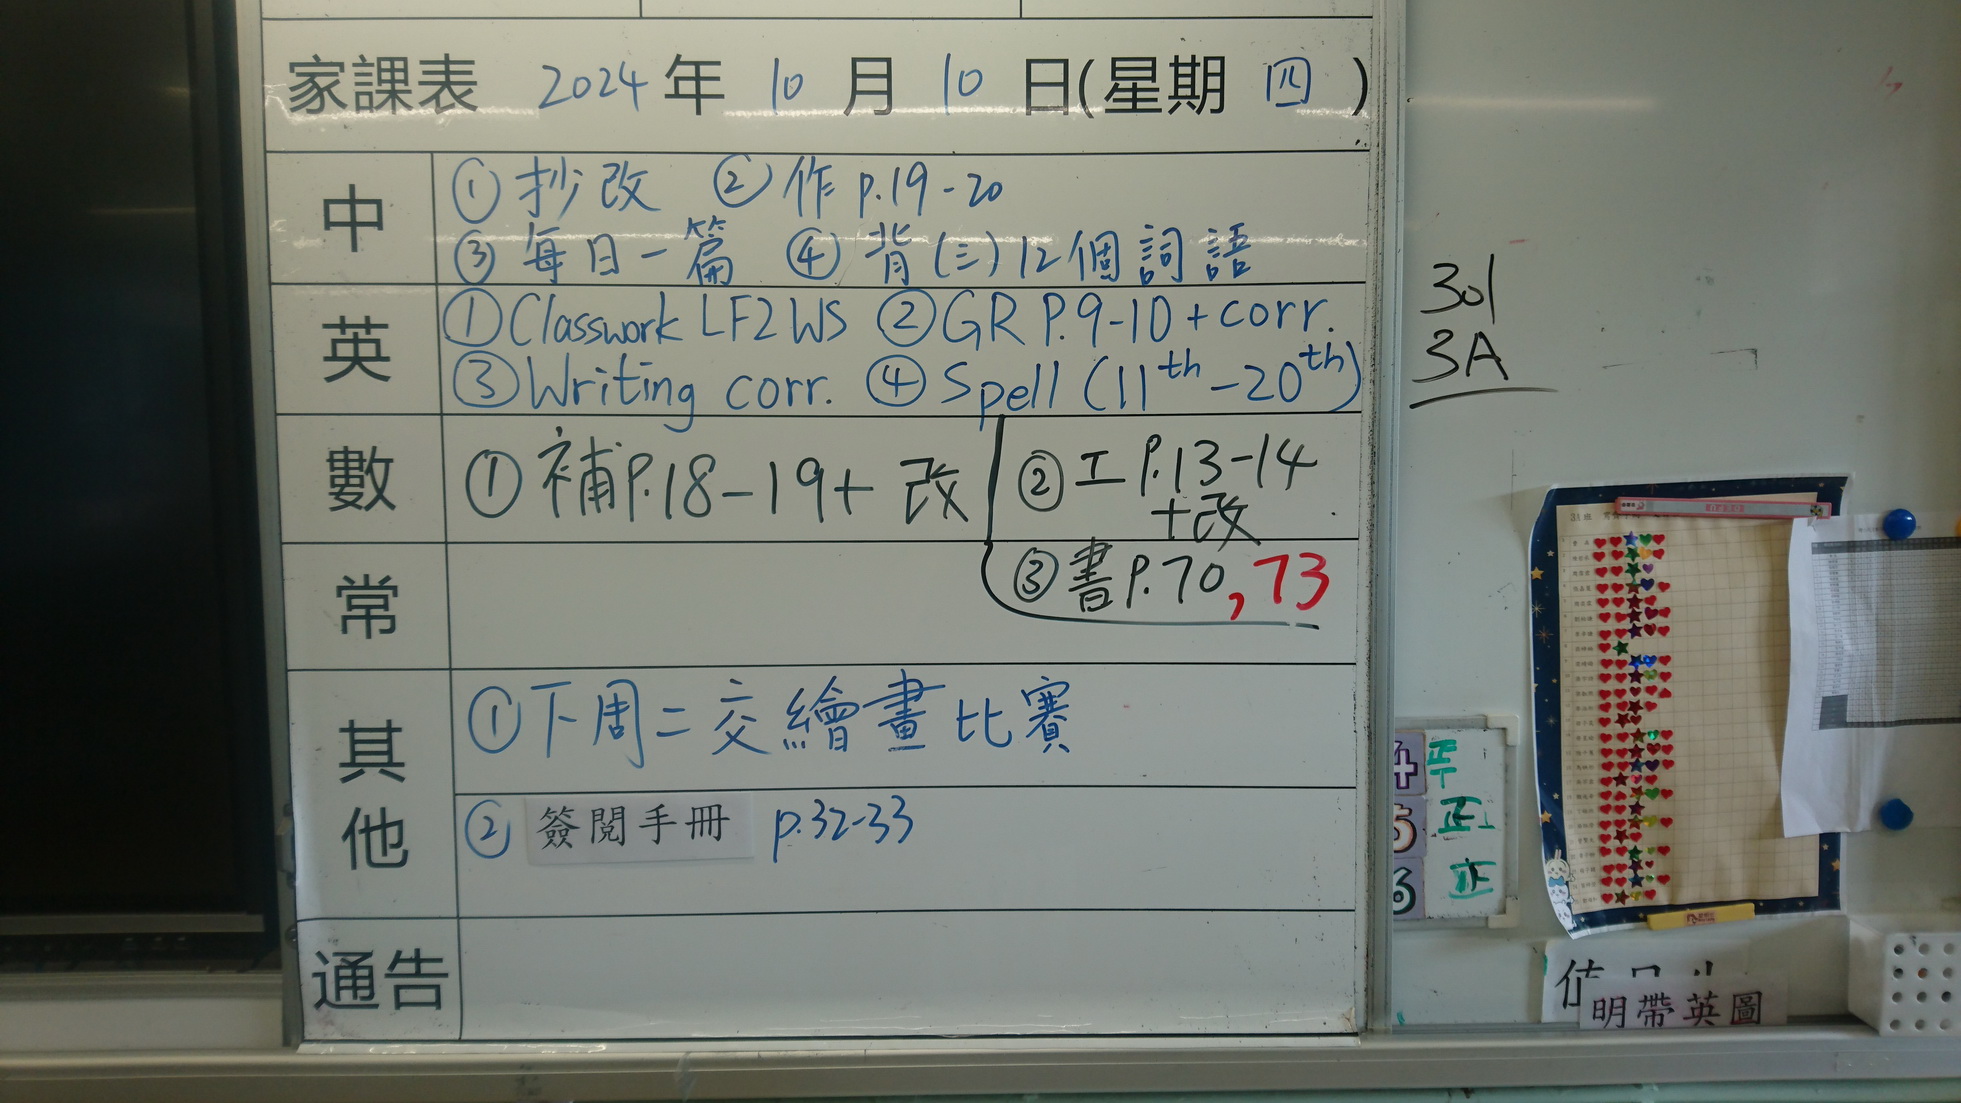 家課表 2024 年 10 月 10 日(星期 四 )
中
① 抄改 ② 作 p.19-20
③ 每日一篇 ④ 背(三)12個詞語
英
① Classwork LF2 WS ② GR P.9-10 + corr.
③ Writing corr. ④ Spell (11th - 20th)
數
① 補P.18-19+ 改
② 工 P.13-14
+改
③ 書 P.70,73
常
其他
① 下周二交繪畫比賽
② 簽閱手冊 p.32-33
通告
301
3A
4 正
5 正
6 正
明帶英圖